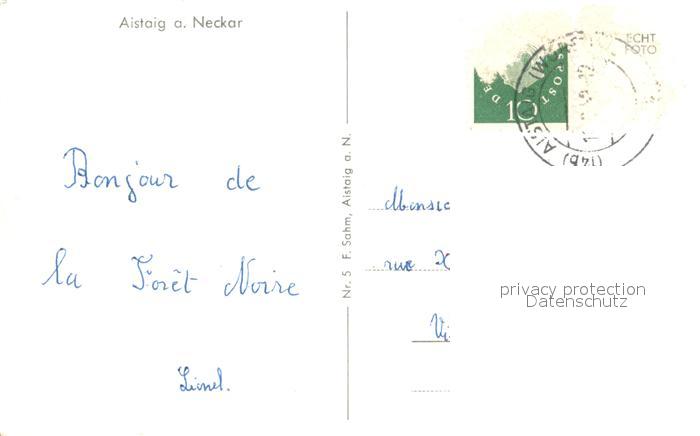 Aistaig a. Neckar
ECHT
FOTO
10
POST
(14b) AISTAIG
Bonjour de
la Forêt Noire
Lionel.
Nr. 5 F. Sahm, Aistaig a. N.
rue
privacy protection
Datenschutz